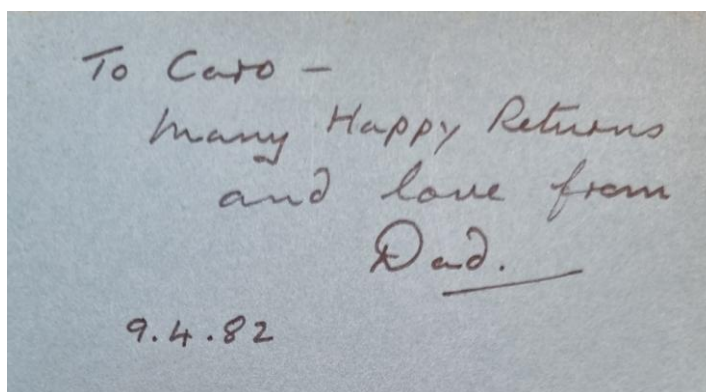 To Caro -
Many Happy Returns
and love from
Dad.
9.4.82